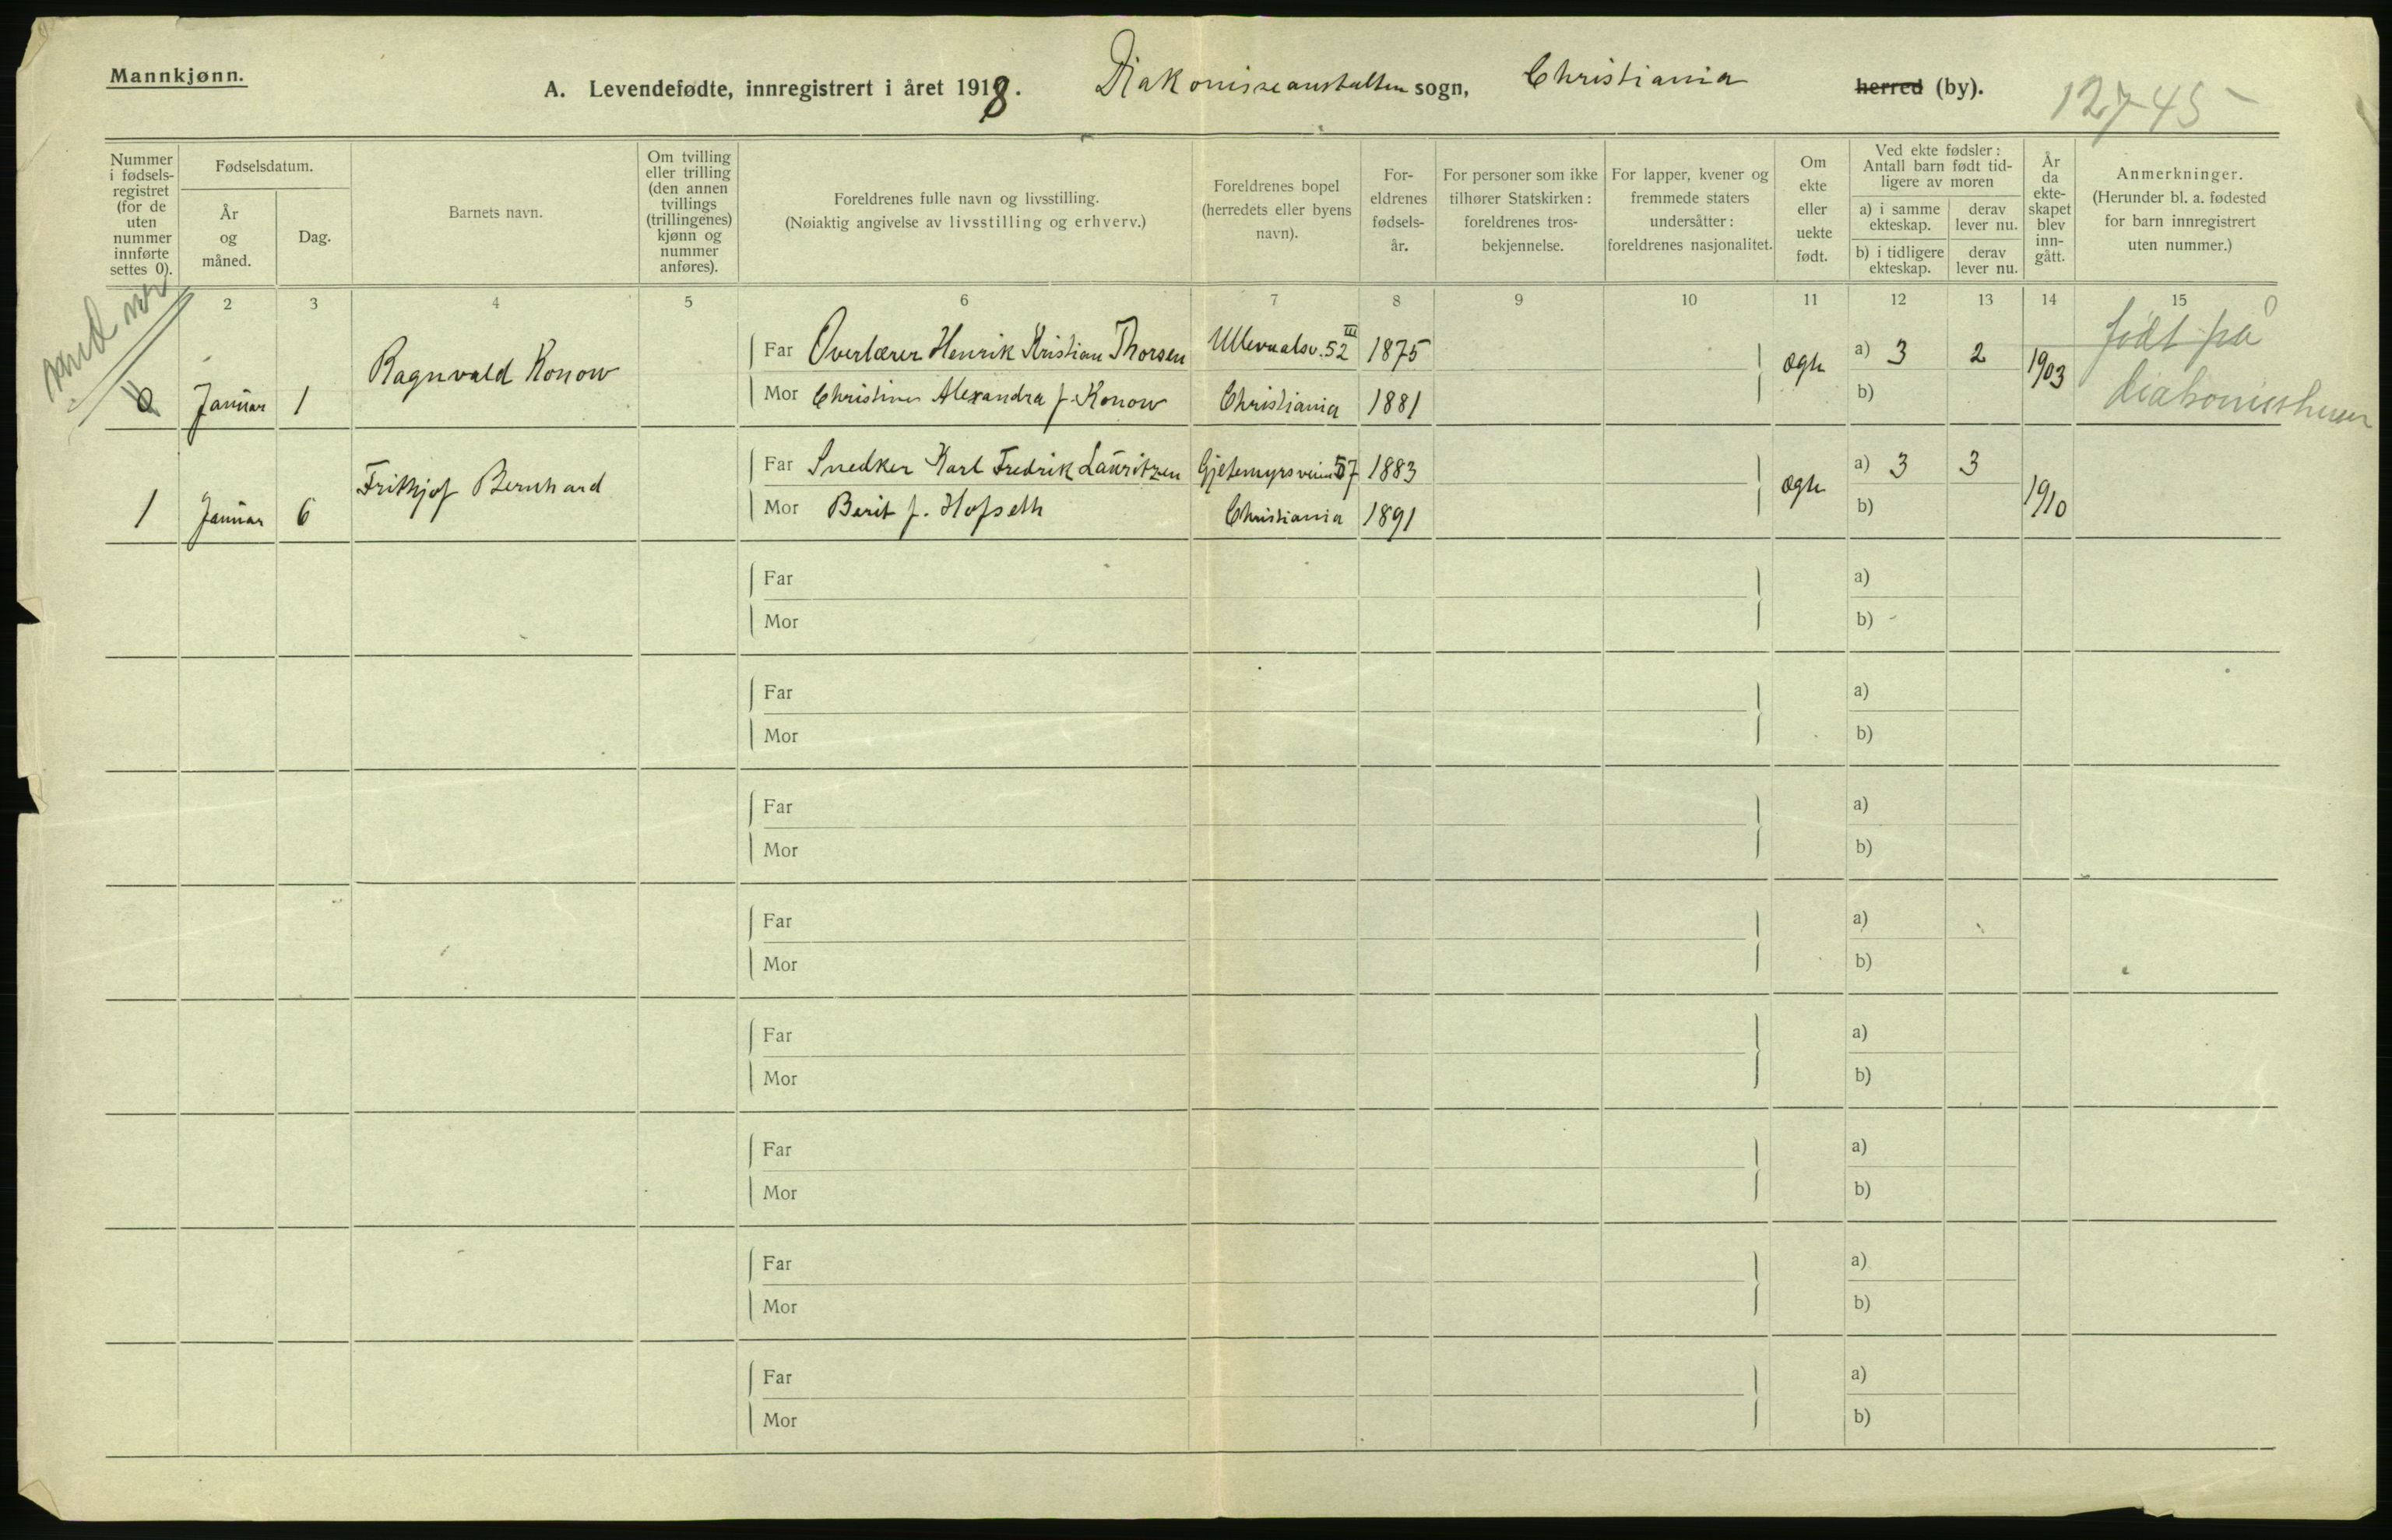 Mannkjønn.
A. Levendefødte, innregistrert i året 1918. Diakonisseanstalten sogn, Christiania herred (by). 12745
Nummer i fødselsregistret (for de uten nummer innførte settes 0).
Fødselsdatum.
År og måned.
Dag.
Barnets navn.
Om tvilling eller trilling (den annen tvillings (trillingenes) kjønn og nummer anføres).
Foreldrenes fulle navn og livsstilling.
(Nøiaktig angivelse av livsstilling og erhverv.)
Foreldrenes bopel (herredets eller byens navn).
Foreldrenes fødselsår.
For personer som ikke tilhører Statskirken: foreldrenes trosbekjennelse.
For lapper, kvener og fremmede staters undersåtter: foreldrenes nasjonalitet.
Om ekte eller uekte født.
Ved ekte fødsler: Antall barn født tidligere av moren
a) i samme ekteskap.
derav lever nu.
b) i tidligere ekteskap.
derav lever nu.
År da ekteskapet blev inngått.
Anmerkninger.
(Herunder bl. a. fødested for barn innregistrert uten nummer.)
2 3 4 5 6 7 8 9 10 11 12 13 14 15
Januar 1 Ragnvald Konow
Far Overlærer Henrik Kristian Thorsen Ullevaalsv. 52 III 1875
Mor Christine Alexandra f. Konow Christiania 1881
ægte a) 3 2 1903
b)
født på
1 Januar 6 Frithjof Bernhard
Far Snedker Karl Fredrik Lauritzen Gjetemyrsveien 57 1883
Mor Berit f. Hofseth Christiania 1891
ægte a) 3 3 1910
b)
Far a)
Mor b)
Far a)
Mor b)
Far a)
Mor b)
Far a)
Mor b)
Far a)
Mor b)
Far a)
Mor b)
Far a)
Mor b)
Far a)
Mor b)